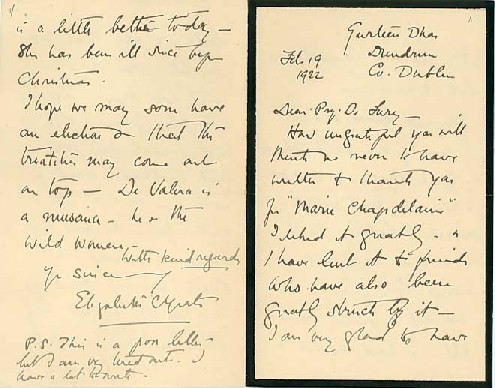 Gurteen Dhas
Dundrum
Co. Dublin
Feb 19
1922
Dear Prof. De Lury –
How ungrateful you will
think me never to have
written to thank you
for "Maria Chapdelaine"
I liked it greatly – &
I have lent it to friends
who have also been
greatly struck by it –
I am very glad to have
is a little better today –
She has been ill since
Christmas.
I hope we may soon have
an election & that the
may come out
on top – De Valera is
a nuisance – he & the
wild women,
With kind regards
Yr sincerely
Elizabeth C Yeats
P.S. This is a poor letter
but I am very tired out – I
have a lot to write.